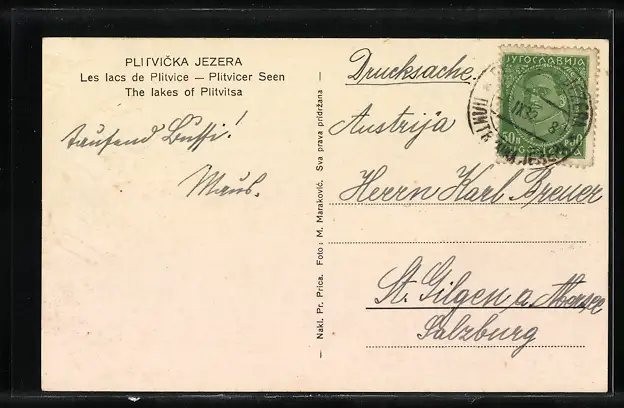 PLITVIČKA JEZERA
Les lacs de Plitvice — Plitvicer Seen
The lakes of Plitvitsa
tausend Bussi!
Maus.
— Nakl. Pr. Prica. Foto: M. Maraković. Sva prava pridržana —
Drucksache.
Austrija
Herrn Karl Breuer
St. Gilgen a. Abersee
Salzburg
ЈУГОСЛАВИЈА